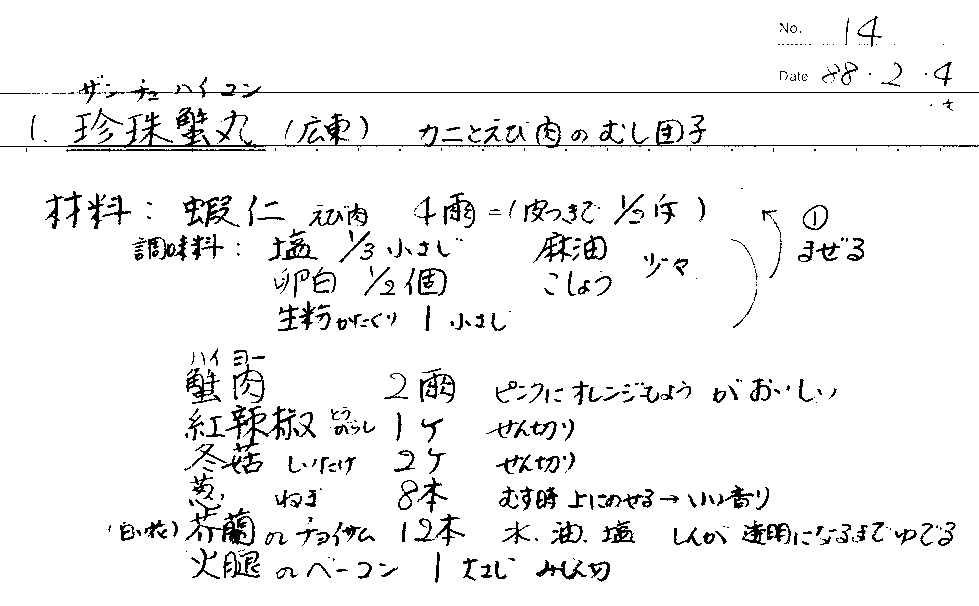 No. 14
Date 88・2・4
ザン チュ ハイ コン
1. 珍珠蟹丸 (広東) カニとえび肉のむし団子
材料: 蝦仁 えび肉 4両=(皮つきで 1/2斤) ①
調味料: 塩 1/3 小さじ 麻油 少々 まぜる
卵白 1/2個 こしょう
生粉 かたくり 1 小さじ
ハイ ヨー
蟹肉 2両 ピンクにオレンジもよう がおいしい
紅辣椒 とうがらし 1ケ せん切り
冬菇 しいたけ 2ケ せん切り
葱 ねぎ 8本 むす時 上にのせる→いい香り
(白い花) 芥蘭 のチョイサム 12本 水、油、塩 しんが 透明になるまでゆでる
火腿 のベーコン 1 大さじ みじん切